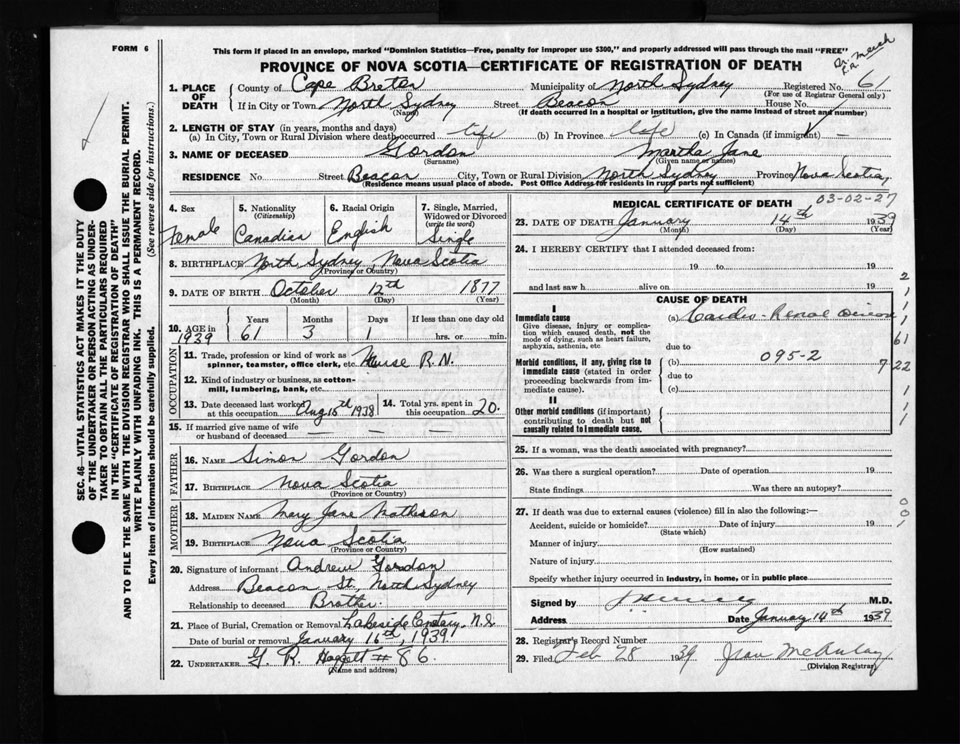 FORM 6
This form if placed in an envelope, marked "Dominion Statistics—Free, penalty for improper use $300," and properly addressed will pass through the mail "FREE"
PROVINCE OF NOVA SCOTIA—CERTIFICATE OF REGISTRATION OF DEATH
1. PLACE OF DEATH
County of Cape Breton Municipality of North Sydney Registered No. 61
(For use of Registrar General only)
If in City or Town North Sydney Street Beacon House No.
(Name) (If death occurred in a hospital or institution, give the name instead of street and number)
2. LENGTH OF STAY (in years, months and days)
(a) In City, Town or Rural Division where death occurred life (b) In Province life (c) In Canada (if immigrant) —
3. NAME OF DECEASED Gordon Martha Jane
(Surname) (Given name or names)
RESIDENCE No. Street Beacon City, Town or Rural Division North Sydney Province Nova Scotia
(Residence means usual place of abode. Post Office Address for residents in rural parts not sufficient)
4. Sex 5. Nationality (Citizenship) 6. Racial Origin 7. Single, Married, Widowed or Divorced (write the word)
Female Canadian English Single
8. BIRTHPLACE North Sydney, Nova Scotia
(Province or Country)
9. DATE OF BIRTH October 12th 1877
(Month) (Day) (Year)
10. AGE in 1939 Years Months Days If less than one day old
61 3 1 hrs. or min.
OCCUPATION
11. Trade, profession or kind of work as spinner, teamster, office clerk, etc. Nurse R.N.
12. Kind of industry or business, as cotton-mill, lumbering, bank, etc.
13. Date deceased last worked at this occupation Aug 15th 1938
14. Total yrs. spent in this occupation 20.
15. If married give name of wife or husband of deceased — — —
FATHER
16. NAME Simon Gordon
17. BIRTHPLACE Nova Scotia
(Province or Country)
MOTHER
18. MAIDEN NAME Mary Jane Matheson
19. BIRTHPLACE Nova Scotia
(Province or Country)
20. Signature of informant Andrew Gordon
Address Beacon St, North Sydney
Relationship to deceased Brother.
21. Place of Burial, Cremation or Removal Lakeside Cemetery, N.S.
Date of burial or removal January 16th, 1939
22. UNDERTAKER G. R. # 86.
(Name and address)
03-02-27
MEDICAL CERTIFICATE OF DEATH
23. DATE OF DEATH January 14th 1939
(Month) (Day) (Year)
24. I HEREBY CERTIFY that I attended deceased from:
19 to 19
and last saw h alive on 19
CAUSE OF DEATH
I
Immediate cause (a) Cardio-Renal
Give disease, injury or complication which caused death, not the mode of dying, such as heart failure, asphyxia, asthenia, etc
due to
Morbid conditions, if any, giving rise to immediate cause (stated in order proceeding backwards from immediate cause).
(b) 095-2
due to
(c)
II
Other morbid conditions (if important) contributing to death but not causally related to immediate cause.
2
1
1
1
61
7 22
1
1
1
25. If a woman, was the death associated with pregnancy?
26. Was there a surgical operation? Date of operation 19
State findings Was there an autopsy?
27. If death was due to external causes (violence) fill in also the following:—
Accident, suicide or homicide? Date of injury 19
(State which)
Manner of injury
(How sustained)
Nature of injury
Specify whether injury occurred in industry, in home, or in public place
0
0
1
Signed by M.D.
Address Date January 14th 1939
28. Registrar's Record Number
29. Filed Feb 28 1939 Jean McAulay
(Division Registrar)
SEC. 46—VITAL STATISTICS ACT MAKES IT THE DUTY
OF THE UNDERTAKER OR PERSON ACTING AS UNDER-
TAKER TO OBTAIN ALL THE PARTICULARS REQUIRED
IN THE "CERTIFICATE OF REGISTRATION OF DEATH"
AND TO FILE THE SAME WITH THE DIVISION REGISTRAR WHO SHALL ISSUE THE BURIAL PERMIT.
WRITE PLAINLY WITH UNFADING INK. THIS IS A PERMANENT RECORD.
Every item of information should be carefully supplied. (See reverse side for instructions.)